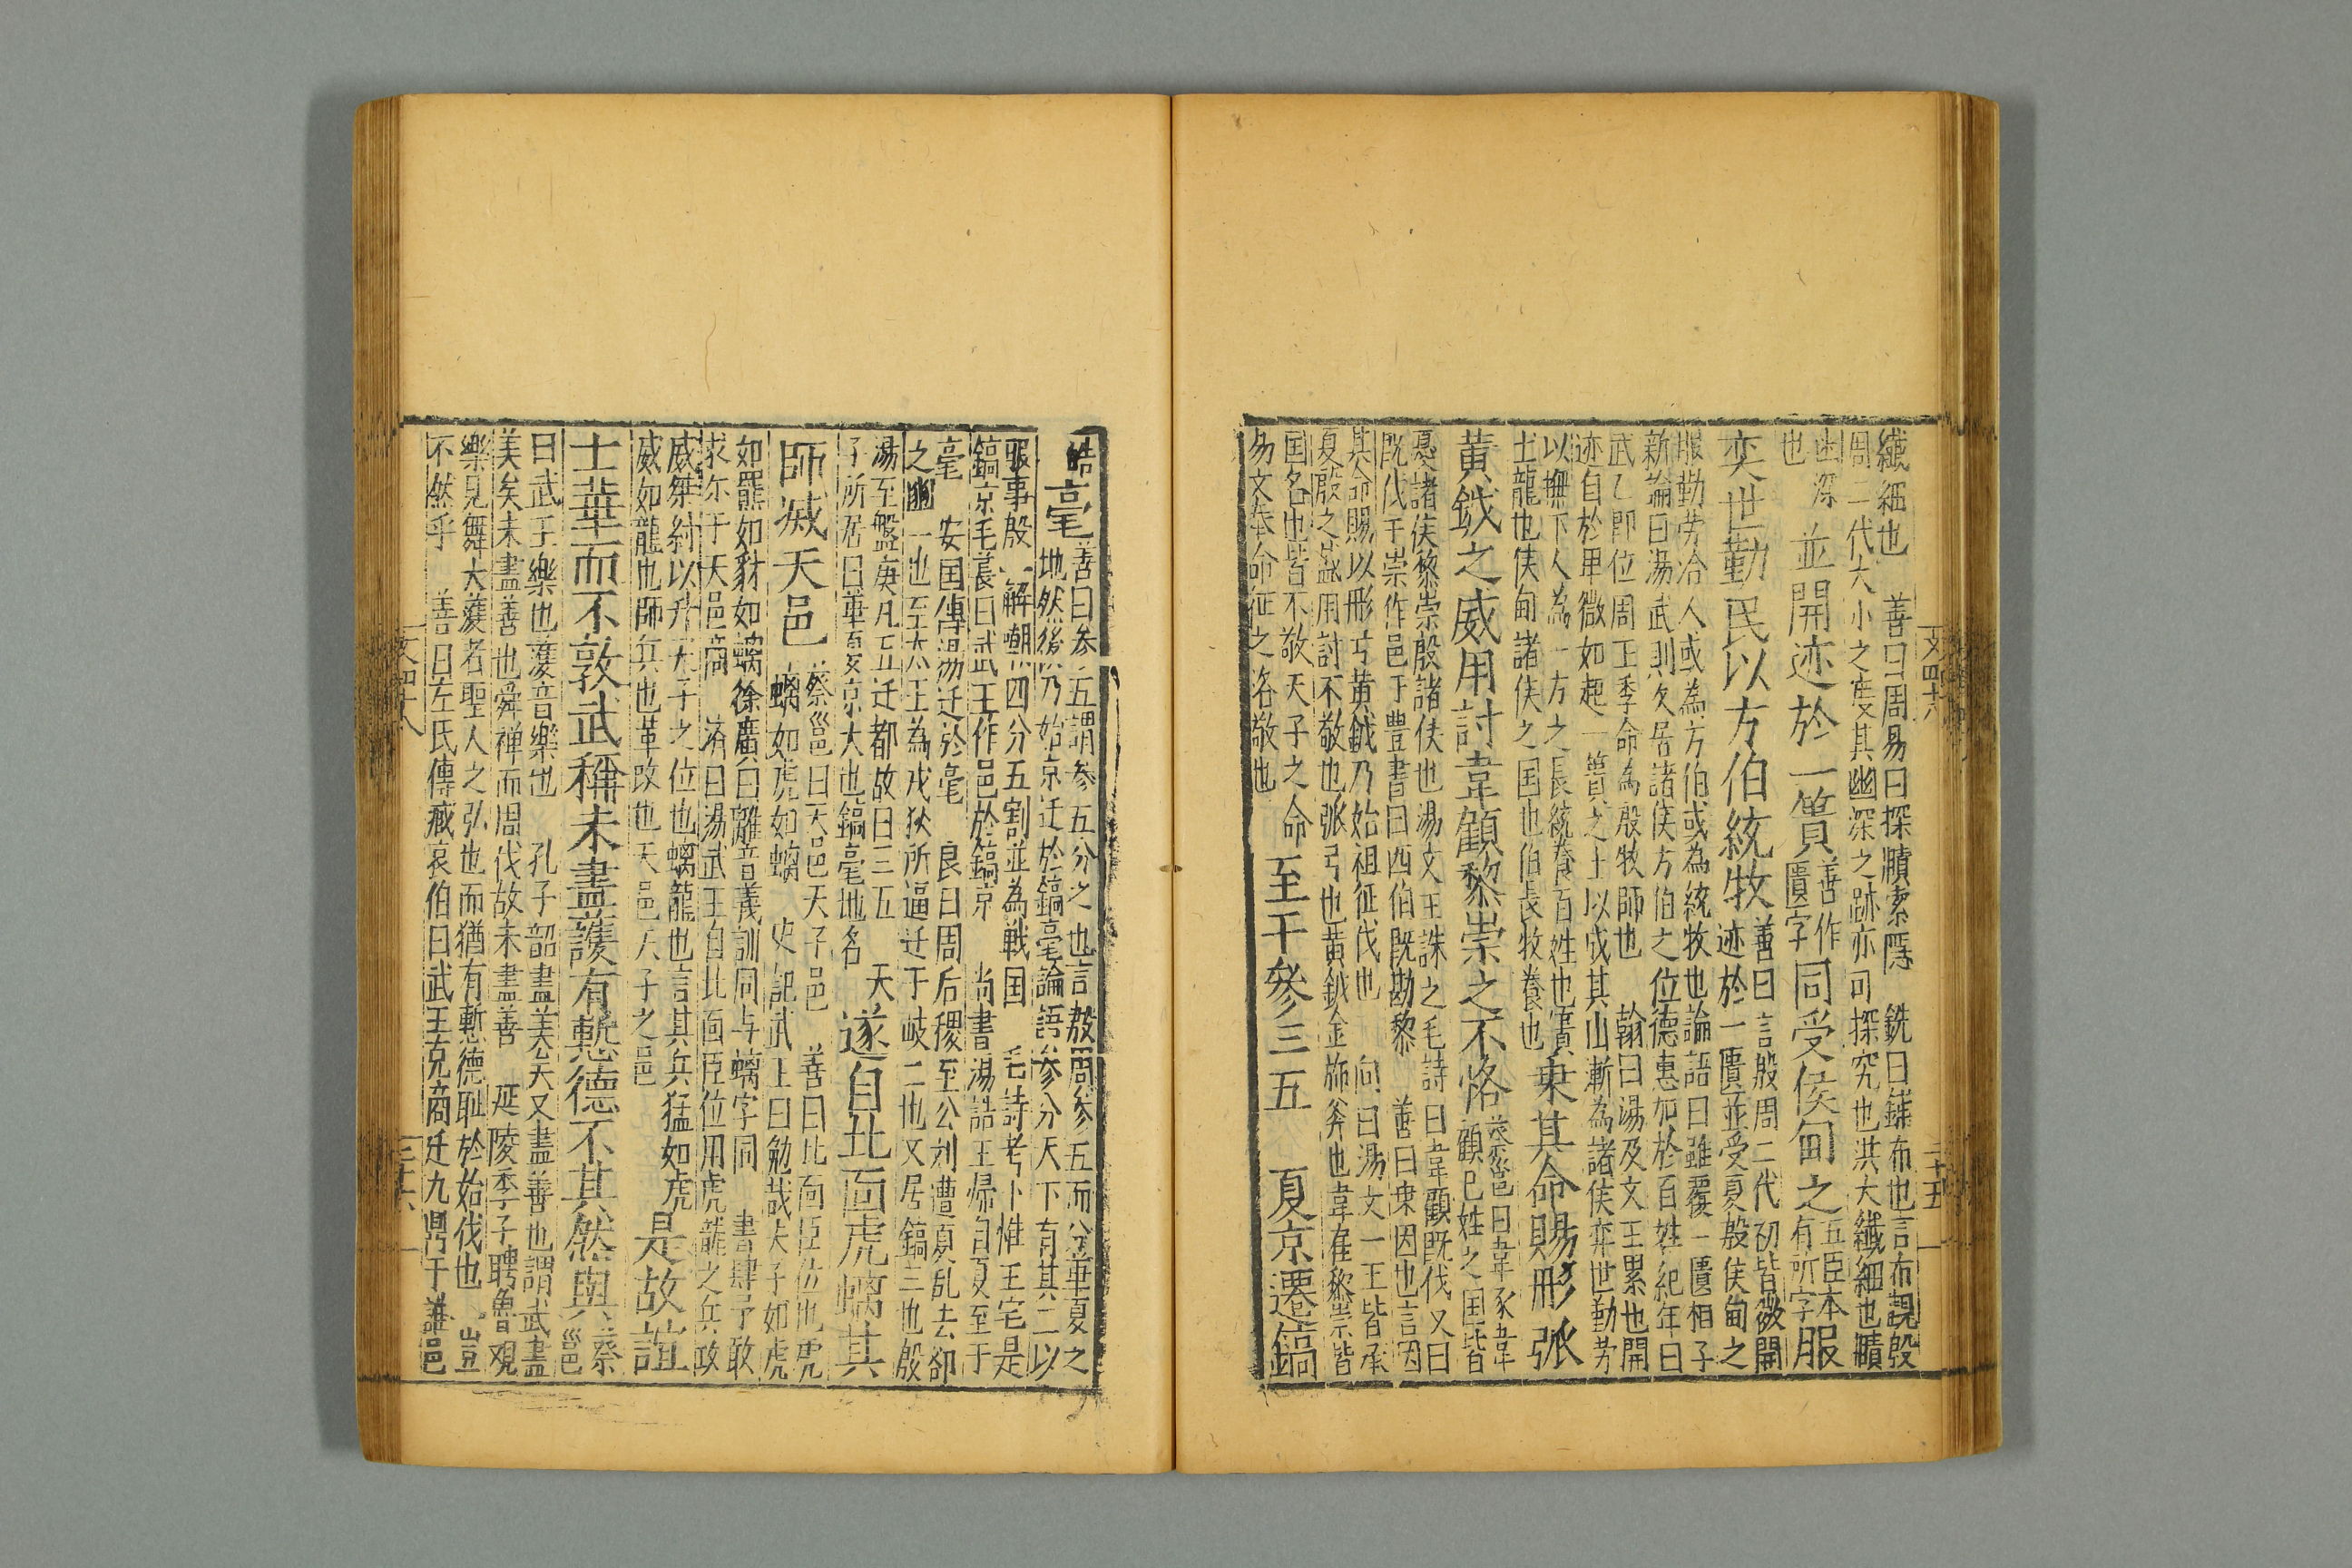 纎細也　善曰周易曰探賾索隱　銑曰鋪布也言布覩殷
周二代大小之度其幽深之跡亦可探究也洪大纎細也賾
幽深也　並開迹於一簣善作匱字同受侯甸之五臣本有所字服
善曰言殷周二代初皆微開迹於一匱並受夏殷侯甸之
奕世勤民以方伯統牧
服勤劳洽人或為方伯或為統牧也論語曰雖覆一匱相子
新論曰湯武則久居諸侯方伯之位德惠加於百姓紀年曰
武乙即位周王季命為殷牧師也　翰曰湯及文王累也開
迹自於卑微如起一簣之土以成其山漸為諸侯奕世勤劳
以撫下人為一方之長統養百姓也簣
土龍也侯甸諸侯之国也伯長牧養也　乗其命賜彤弧
黄鉞之威用討韋顧黎崇之不恪蔡邕曰韋豕韋顧巳姓之国皆
夏諸侯黎崇殷諸侯也湯文王誅之毛詩曰韋顧既伐又曰
既伐于崇作邑于豊書曰西伯既勘黎　善曰乗因也言因
其命賜以彤弓黄鉞乃始祖征伐也　向曰湯文一王皆承
夏殷之威用討不敬也弧弓也黄鉞金飾斧也韋顧黎崇皆
国名也皆不敬天子之命
易文奉命征之洛敬也　至于參三五　夏京遷鎬
皓亳善曰参五謂参五分之也言殷周参五而分華夏之
地然後乃始京迁於鎬亳論語参分天下有其二以
服事殷　解嘲四分五割並為戦国　毛詩考卜惟王宅是
鎬京毛萇曰武王作邑於鎬京　尚書湯誥王帰自夏至于
亳　安国傳湯迁於亳　良曰周后稷至公刘遭夏乱去邰
之豳一也至太王為戎狄所逼迁于岐二也文居鎬三也殷
湯至盤庚凡五迁都故曰三五
天子所居曰華夏京大也鎬亳地名　遂自北面虎螭其
師㓕天邑蔡邕曰天邑天子邑　善曰北面臣位也虎
螭如虎如螭　史記武王曰勉哉夫子如虎
如羆如豺如螭徐廣曰離音義訓同与螭字同　書肆予敢
求尓于天邑商　濟曰湯武王自北面臣位用虎龍之兵攻
威桀紂以升天子之位也螭龍也言其兵猛如虎
威如龍也師兵也革改也天邑天子之邑　是故誼
士華而不敦武稱未盡護有慙德不其然與蔡邕
曰武王樂也濩音樂也　孔子韶盡美矣又盡善也謂武盡
美矣未盡善也舜禅而周伐故未盡善　延陵季子聘魯观
樂見舞大濩者聖人之弘也而猶有慙德恥於始伐也　豈
不然乎　善曰左氏傳臧哀伯曰武王克商迁九鼎于雒邑
文四十八
二十五
文四十八
二十六